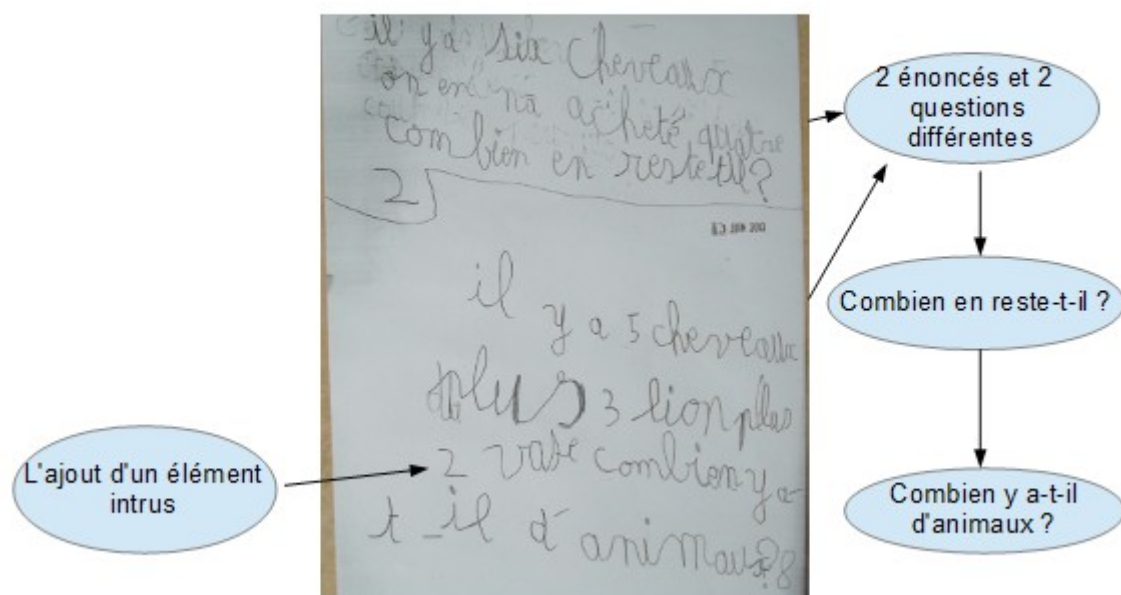 il y a six cheveaux
on en na acheté quatre
combien en reste til?
2
13 JUIN 2013
il
y a 5 cheveaux
plus 3 lion plus
2 vase combien y a-
t-il d'animaux? 8
2 énoncés et 2
questions
différentes
Combien en reste-t-il ?
Combien y a-t-il
d'animaux ?
L'ajout d'un élément
intrus